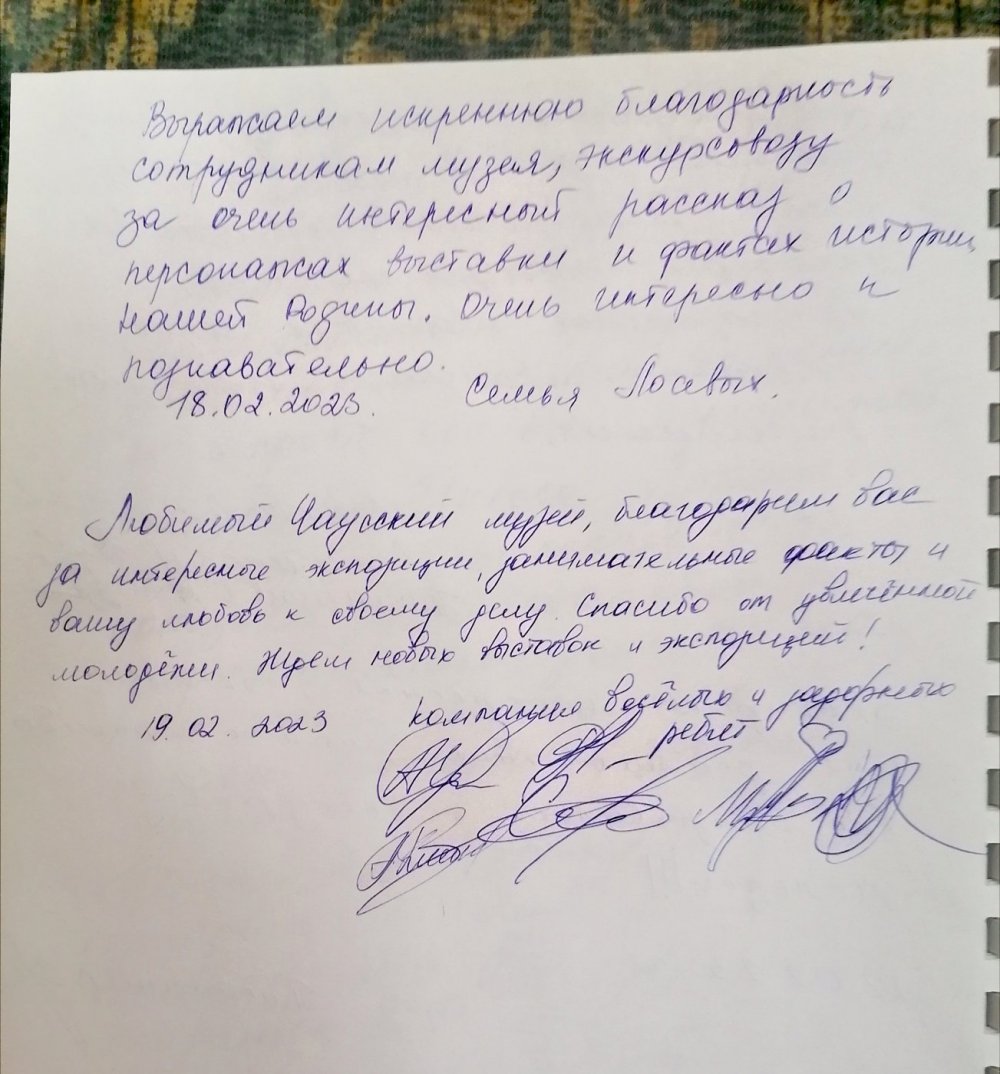 Выражаем искреннюю благодарность
сотрудникам музея, экскурсоводу
за очень интересный рассказ о
персонажах выставки и фактах истории
нашей Родины. Очень интересно и
познавательно.
18.02.2023. Семья Лосевых.
Любимый Чаусский музей, благодарим вас
за интересные экспозиции, занимательные факты и
вашу любовь к своему делу. Спасибо от увлечённой
молодёжи. Ждём новых выставок и экспозиций!
19.02.2023 компания весёлых и задорных
ребят